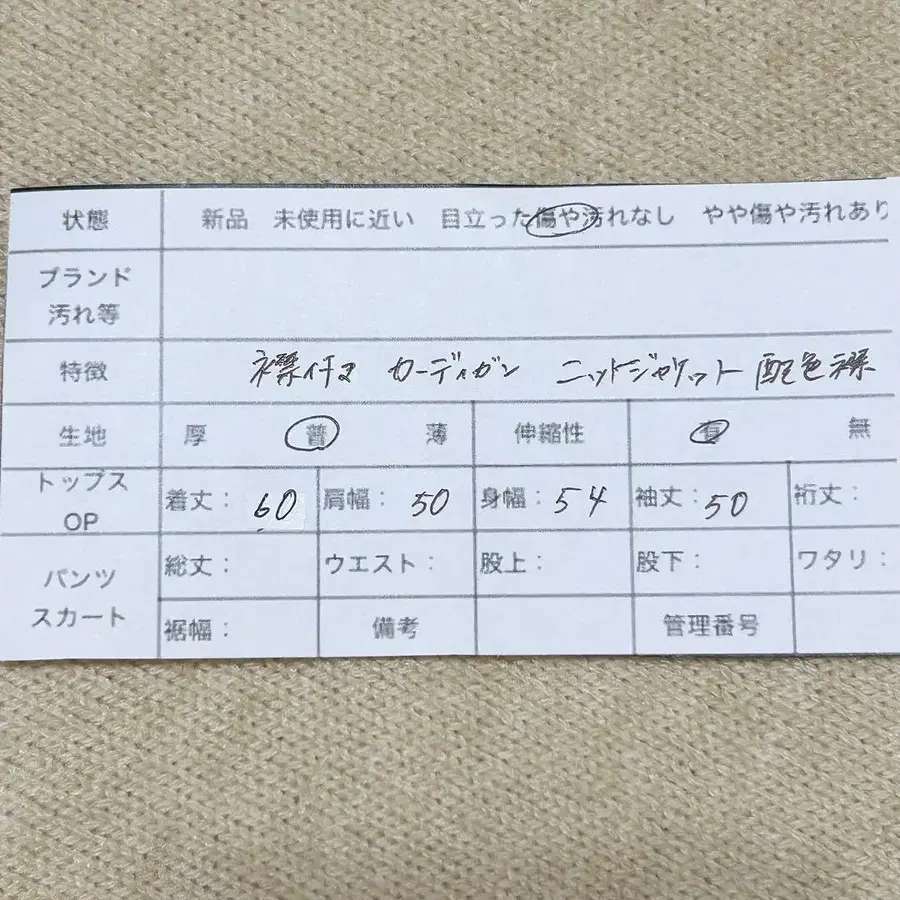 状態 新品 未使用に近い 目立った傷や汚れなし やや傷や汚れあり
ブランド
汚れ等
特徴 襟付き カーディガン ニットジャケット 配色襟
生地 厚 普 薄 伸縮性 有 無
トップス
OP
着丈: 60 肩幅: 50 身幅: 54 袖丈: 50 裄丈:
パンツ
スカート
総丈: ウエスト: 股上: 股下: ワタリ:
裾幅: 備考 管理番号